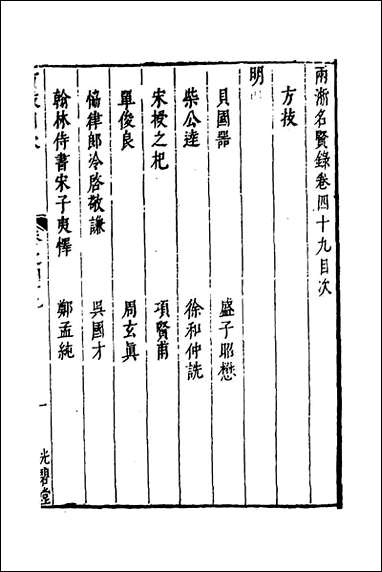 兩浙名賢錄卷四十九目次
方技
明
貝國器 盛子昭懋
柴公逵 徐和仲詵
宋授之杞 項賢甫
單俊良 周玄真
協律郎冷啓敬謙 吳國才
翰林侍書宋子夷懌 鄭孟純
一
光碧堂